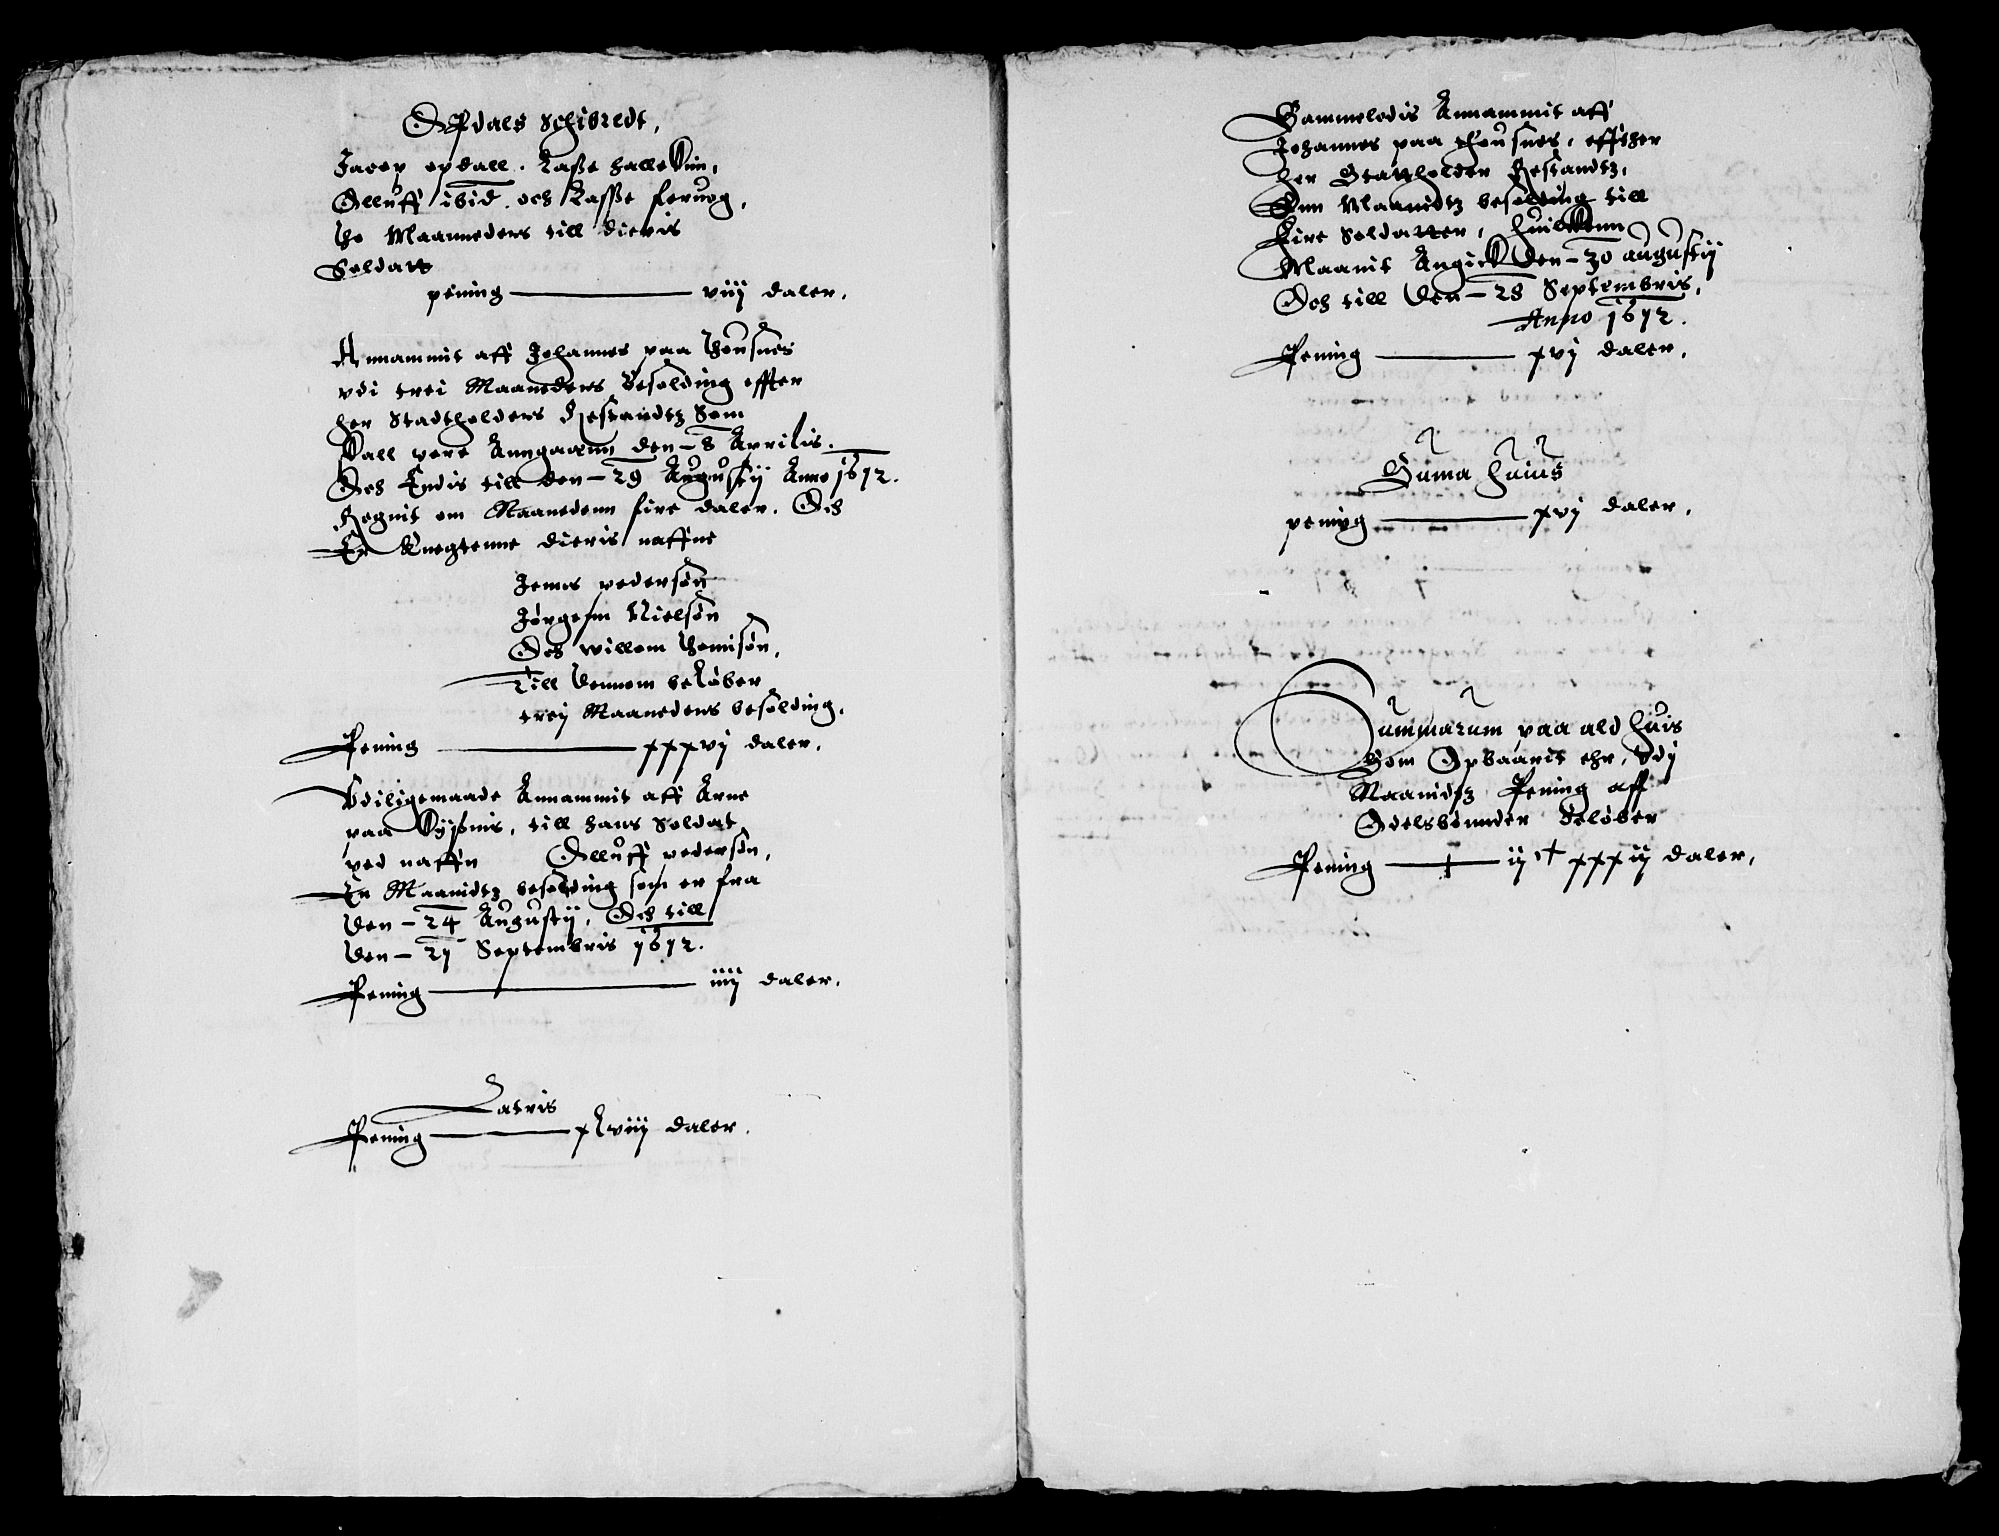 Opdals Schibredt,
Jacop opdall. Lasse halleKim,
Olluff ibid. och Lasse feruog,
tho Maanneders till dieris
Soldatt
pening — viij daler.
Annammit aff Johannes paa thousnes
vdi trei Maaneders Besolding effter
her Stadtholders Zestandtz Som
Kall vere Anngaann den - 8 Aprilis.
Och Endis till den - 29 Augustij Anno 1612.
Regnit om Maanedenn fire daler. Och
Er Knegtenne dieris naffne
Jenns pedersøn
Jørgenn Nielsøn
Och willom thomisøn,
Till dennom beløber
treij Maaneders besolding.
Pening — xxxvj daler.
Vdiligemaade Annammit aff Arne
paa till hans Soldat
ved naffn Olluff pedersøn,
Er Maanidtz besolding som er fra
den - 24 Augustij, Och till
den - 21 Septembris 1612.
Pening — iiij daler.
Latris
Pening — xlviij daler.
Sammeledis Annammit aff
Johannes paa thousnes, effther
her Stattholder Zestandtz,
Enn Maanidtz besolding till
Fire Soldatter, huilKenn
Maanit AngicK den - 30 augustij
Och till den - 28 Septembris,
Anno 1612.
Pening — xvj daler.
Suma huius
pening — xvj daler.
Summarum paa ald huis
Som Opbaarit ehr, vdj
Maanidtz Pening aff
Odelsbønnder beløber
Pening — ij c xxxij daler.